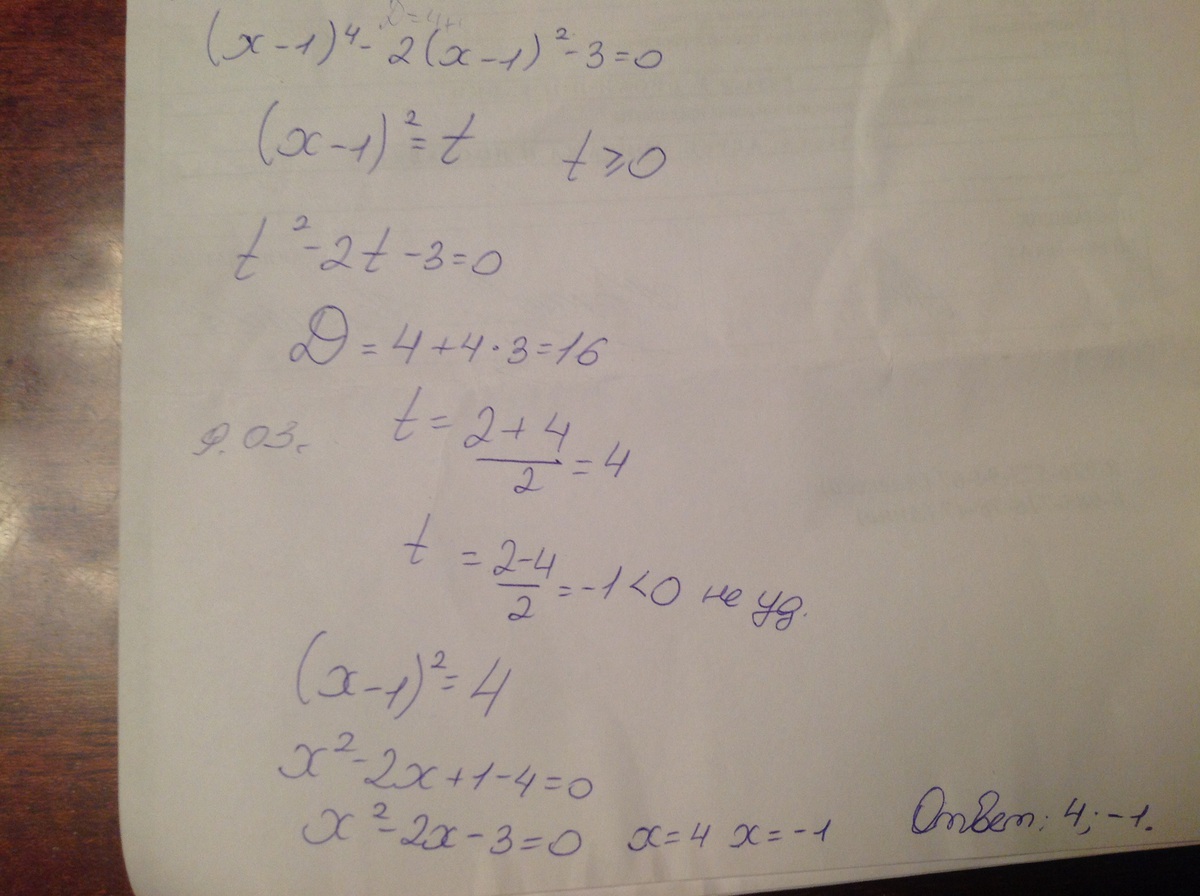 (x-1)⁴- 2(x-1)²-3=0
(x-1)²=t t≥0
t²-2t-3=0
D=4+4·3=16
t= (2+4)/2 =4
t = (2-4)/2 =-1<0 не уд.
(x-1)²=4
x²-2x+1-4=0
x²-2x-3=0 x=4 x=-1 Ответ: 4; -1.